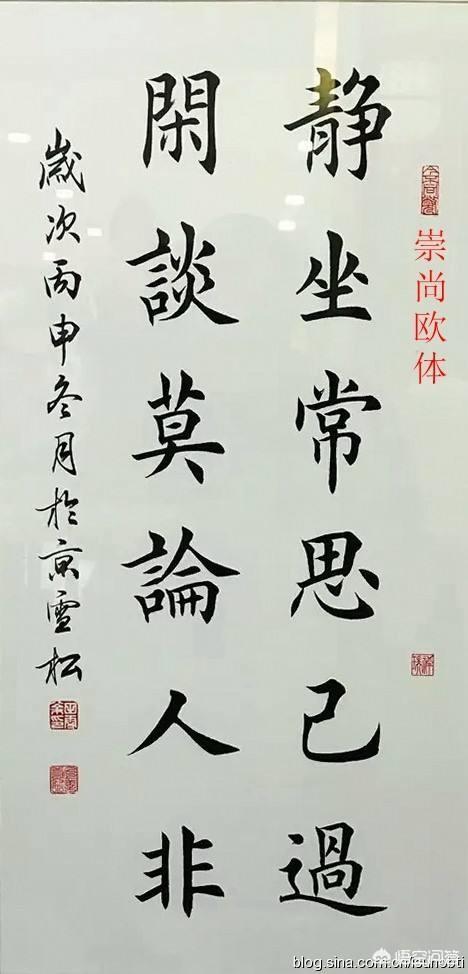 静坐常思己過
閑談莫論人非
歲次丙申冬月於京雪松
崇尚欧体
悟空问答
blog.sina.com.cn/sunopti